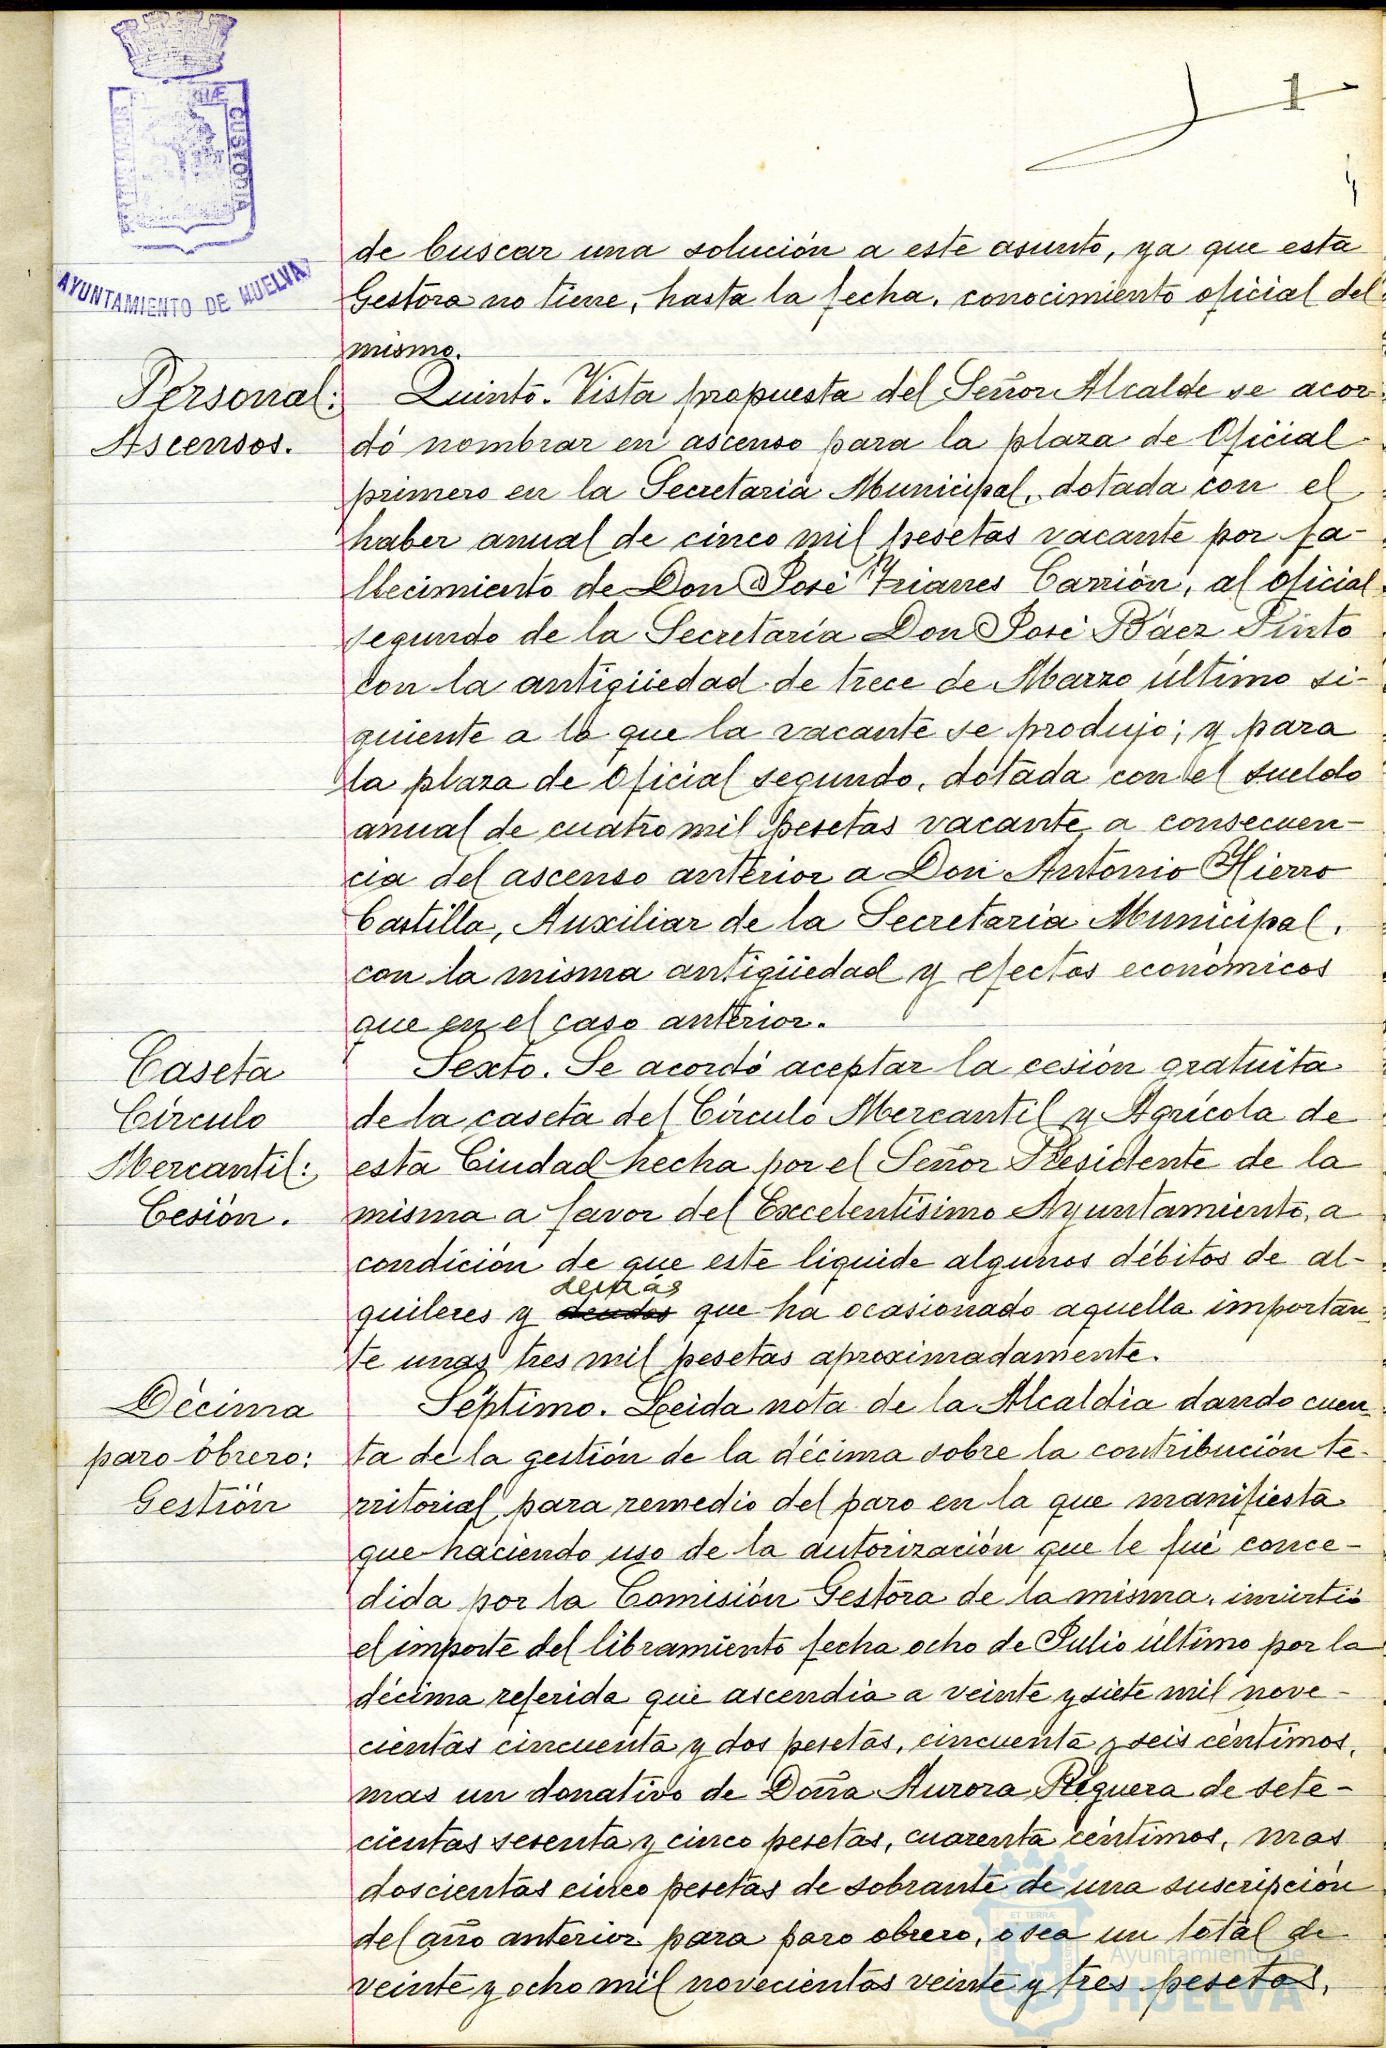 1
AYUNTAMIENTO DE HUELVA
CUSTODIA
de buscar una solución a este asunto, ya que esta
Gestora no tiene, hasta la fecha, conocimiento oficial del
mismo.
Personal:
Ascensos.
Quinto. Vista propuesta del Señor Alcalde se acor
dó nombrar en ascenso para la plaza de Oficial
primero en la Secretaría Municipal, dotada con el
haber anual de cinco mil pesetas vacante por fa-
llecimiento de Don José Carrión, al oficial
segundo de la Secretaría Don José Báez Pinto
con la antigüedad de trece de Marzo último si-
guiente a lo que la vacante se produjo; y para
la plaza de Oficial segundo, dotada con el sueldo
anual de cuatro mil pesetas vacante a consecuen-
cia del ascenso anterior a Don Antonio Hierro
Castilla, Auxiliar de la Secretaría Municipal,
con la misma antigüedad y efectos económicos
que en el caso anterior.
Caseta
Círculo
Mercantil:
Cesión.
Sexto. Se acordó aceptar la cesión gratuita
de la caseta del Círculo Mercantil y Agrícola de
esta Ciudad hecha por el Señor Presidente de la
misma a favor del Excelentísimo Ayuntamiento, a
condición de que este liquide algunos débitos de al-
demás
quileres y deudas que ha ocasionado aquella importan
te unas tres mil pesetas aproximadamente.
Décima
paro obrero:
Gestión
Séptimo. Leida nota de la Alcaldía dando cuen
ta de la gestión de la décima sobre la contribución te-
rritorial para remedio del paro en la que manifiesta
que haciendo uso de la autorización que le fué conce-
dida por la Comisión Gestora de la misma, invirtió
el importe del libramiento fecha ocho de Julio último por la
décima referida que ascendía a veinte y siete mil nove-
cientas cincuenta y dos pesetas, cincuenta y seis céntimos,
mas un donativo de Doña Aurora Reguera de sete-
cientas sesenta y cinco pesetas, cuarenta céntimos, mas
doscientas cinco pesetas de sobrante de una suscripción
del año anterior para paro obrero, o sea un total de
veinte y ocho mil novecientas veinte y tres pesetas,
Ayuntamiento de
HUELVA